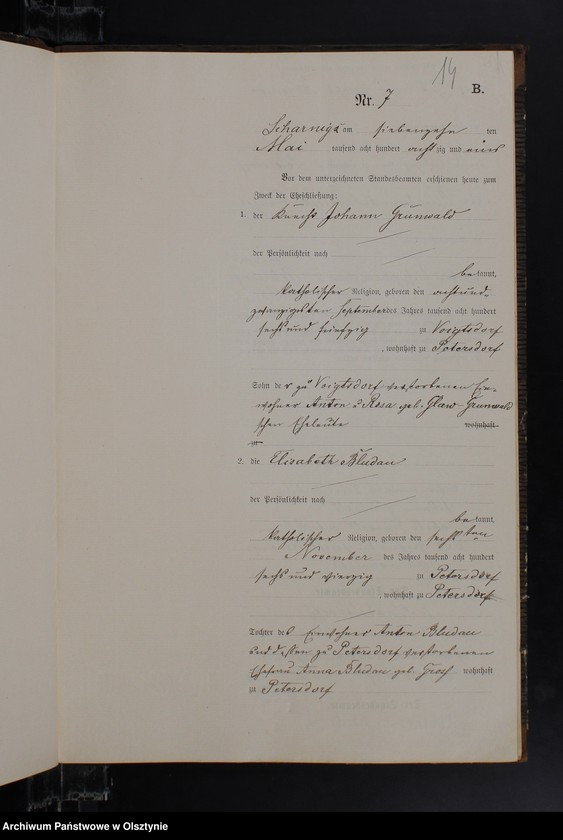 14
B.
Nr. 7
Scharnigk am siebenzehn ten
Mai tausend acht hundert acht zig und eins
Vor dem unterzeichneten Standesbeamten erschienen heute zum
Zweck der Eheschließung:
1. der Knecht Johann Grunwald
der Persönlichkeit nach
be kannt,
katholischer Religion, geboren den achtund-
zwanzigsten September des Jahres tausend acht hundert
sechs und fünfzig zu Voigtsdorf
, wohnhaft zu Petersdorf
Sohn der zu Voigtsdorf verstorbenen Ein-
wohner Anton & Rosa geb. Glaw Grunwald
schen Eheleute wohnhaft
zu
2. die Elisabeth Bludau
der Persönlichkeit nach
be kannt,
katholischer Religion, geboren den sechsten
November des Jahres tausend acht hundert
sechs und vierzig zu Petersdorf
, wohnhaft zu Petersdorf
Tochter des Einwohner Anton Bludau
und dessen zu Petersdorf verstorbenen
Ehefrau Anna Bludau geb. wohnhaft
zu Petersdorf
Archiwum Państwowe w Olsztynie